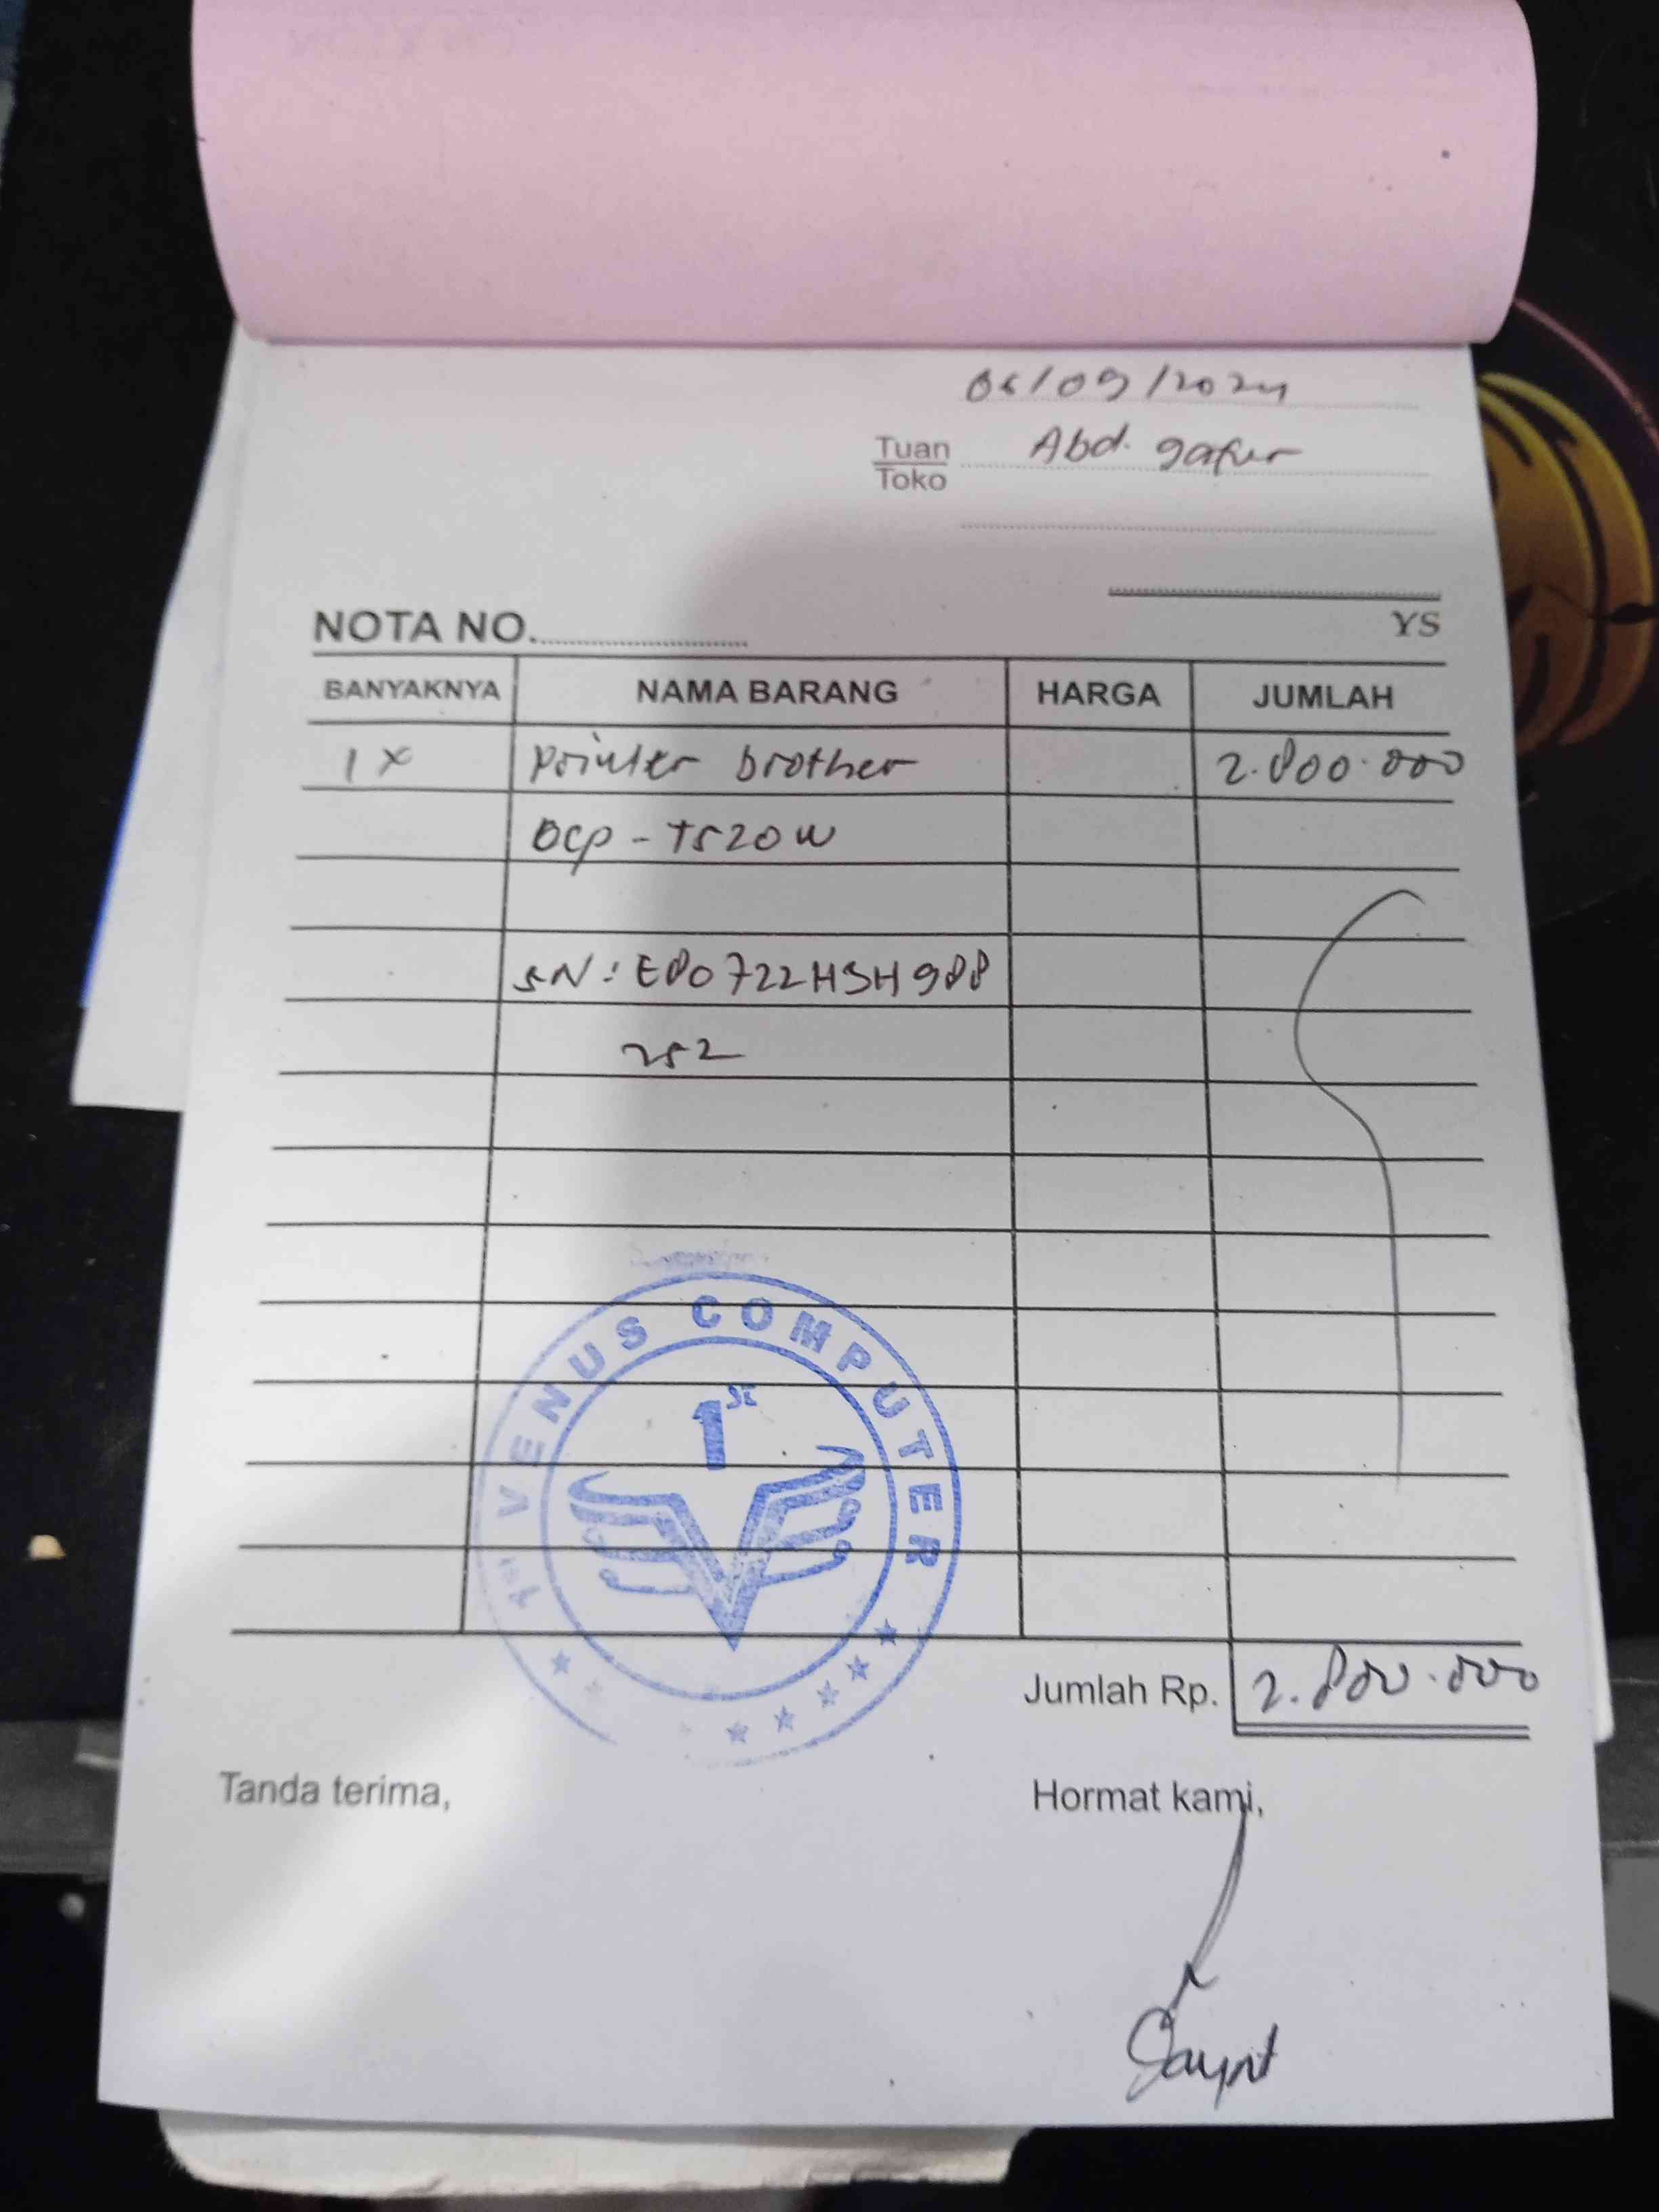 06/09/2024
Tuan Abd. gafur
Toko
NOTA NO.
YS
BANYAKNYA NAMA BARANG HARGA JUMLAH
1 x Printer brother 2.800.000
DCP - T520W
SN : E80722H3H988
252
1ST VENUS COMPUTER
1ST
Jumlah Rp. 2.800.000
Tanda terima, Hormat kami,